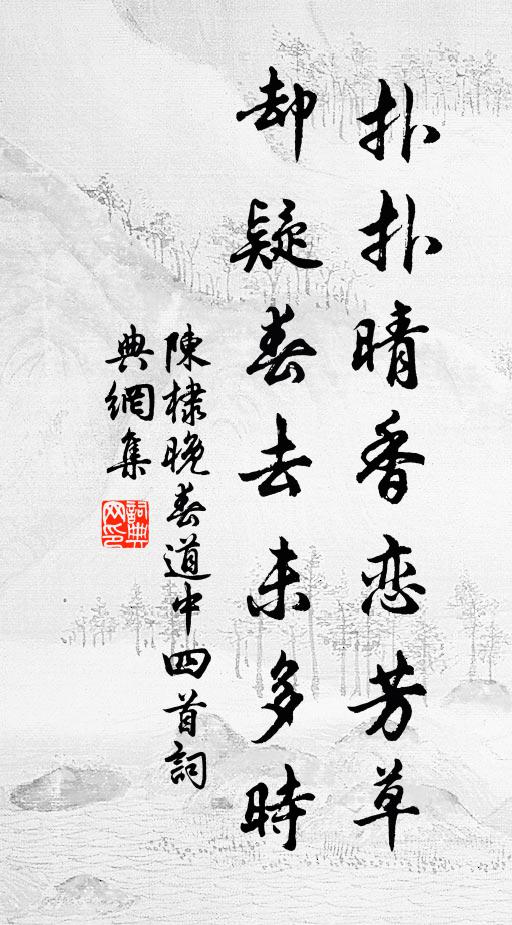 扑扑晴香恋芳草
却疑春去未多時
陳棣晚春道中四首詞
典網集
詞典
网印